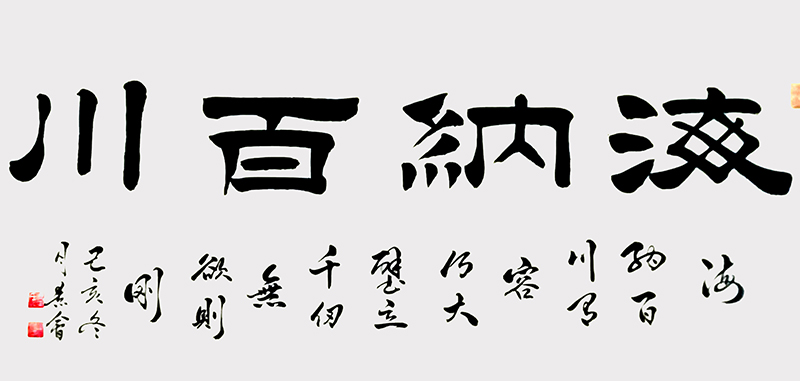 海納百川
海
納百
川有
容
乃大
壁立
千仞
無
欲則
剛
己亥冬
月